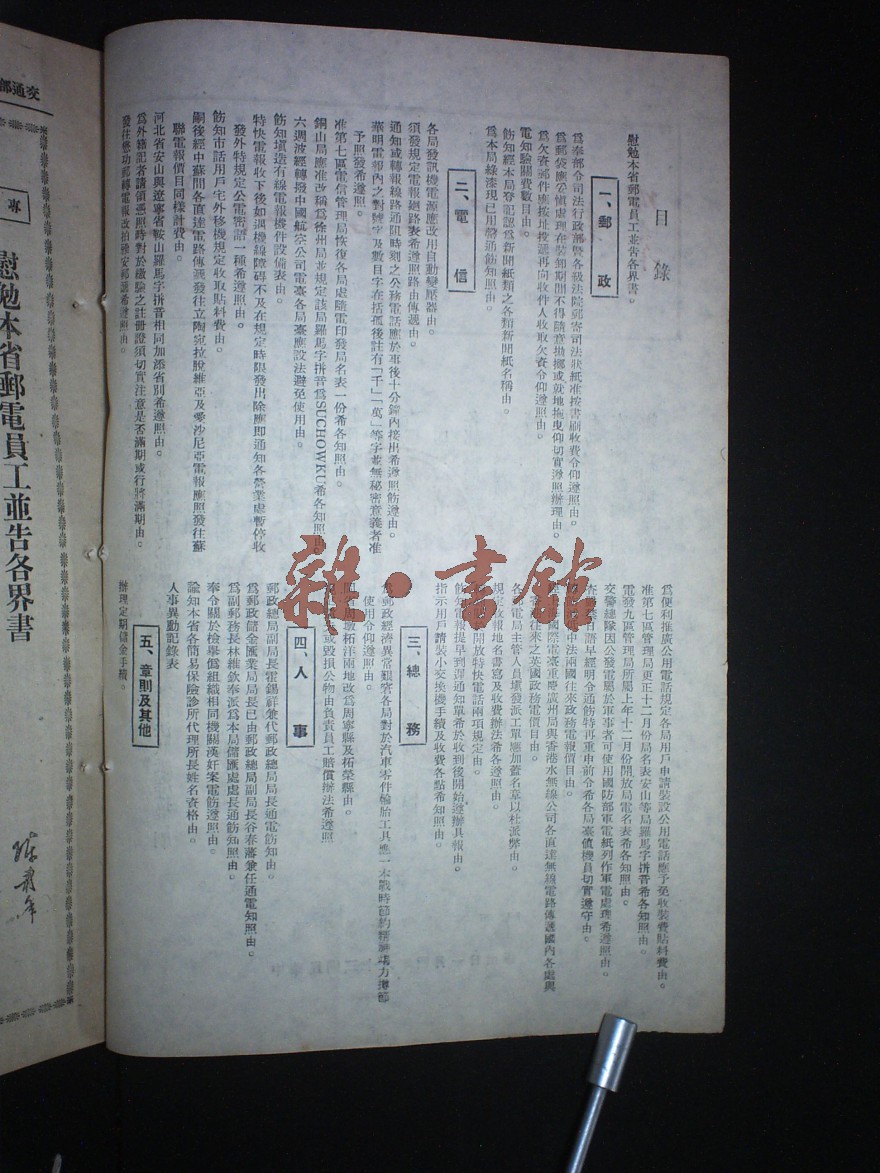 目錄
慰勉本省郵電員工並告各界書。
一、郵政
為奉部令司法行政部暨各級法院郵寄司法狀紙准按書刷收費令仰遵照由。
為郵袋應公愼處理在裝卸期間不得隨意拋擲或就地拖曳仰切實遵照辦理由。
為欠資郵件應按址投遞再向收件人收取欠資令仰遵照由。
電知驗關費數目由。
飭知經本局登記認為新聞紙類之各類新聞紙名稱由。
為本局綠漆現已用罄通飭知照由。
二、電信
各局發訊機電源應改用自動變壓器由。
須發規定電報廻路表希遵照路由傳遞由。
通知或轉報線路通阻時刻之公務電話應於事後十分鐘內接出希遵照飭遵由。
華明電報內之對號字及數目字在括孤後註有「千」「萬」等字並無秘密意義者准
予照發希遵照。
准第七區電信管理局恢復各局處隨電印發局名表一份希各知照由。
銅山局應准改稱為徐州局並規定該局羅馬字拼音為SUCHOWKU希各知照由
六週波經轉撥中國航空公司電臺各局臺應設法避免使用由。
飭知塡造有線電報機件設備表由。
特快電報收下後如遇機線障碍不及在規定時限發出除應即通知各營業處暫停收
發外特規定公電密語一種希遵照由。
飭知市話用戶宅外移機規定收取貼料費由。
嗣後經中蘇間各直達電路傳遞發往立陶宛拉脫維亞及愛沙尼亞電報應照發往蘇
聯電報價目同樣計費由。
河北省安山與遼寧省鞍山羅馬字拼音相同加添省別希遵照由。
為外籍記者請領憑照時對於繳驗之註冊證須切實注意是否滿期或行將滿期由。
為便利推廣公用電話規定各局用戶申請裝設公用電話應予免收裝費貼料費由。
准第七區管理局更正十二月份局名表安山等局羅馬字拼音希各知照由。
電發九區管理局所屬上年十二月份開放局電名表希各知照由。
交警總隊因公發電屬於軍事者可使用國防部軍電紙列作軍電處理希遵照由。
中法兩國往來政務電報價目由。
各郵電局主管人員塡發派工單應加蓋名章以杜派弊由。
開放特快電話兩項規定由。
指示用戶請裝小交換機手續及收費各點希知照由。
三、總務
使用令仰遵照由。
四、人事
郵政總局副局長霍錫祥兼代郵政總局局長通電飭知由。
為郵政儲金匯業局局長已由郵政總局副局長谷春藩兼任通電知照由。
為副郵務長林維欽奉派為本局儲匯處處長通飭知照由。
奉令關於檢舉僞組織相同機關漢奸案電飭遵照由。
諭知本省各簡易保險診所代理所長姓名資格由。
人事異動記錄表
五、章則及其他
辦理定期儲金手續。
雜·書館
交通部
專
慰勉本省郵電員工並告各界書